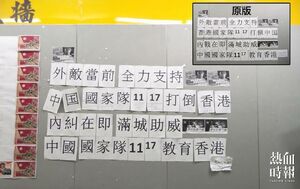 牆
外敵當前 全力支持
中国 國家隊 11 17 打倒 香港
內糾在即 滿城助威
中國 國家隊 11 17 教育香港
原版
外敵當前 全力支持
香港 國家隊 11 17 打倒 中国
內戰在即 滿城助威
中國 國家隊 11 17 教育香港
熱血時報